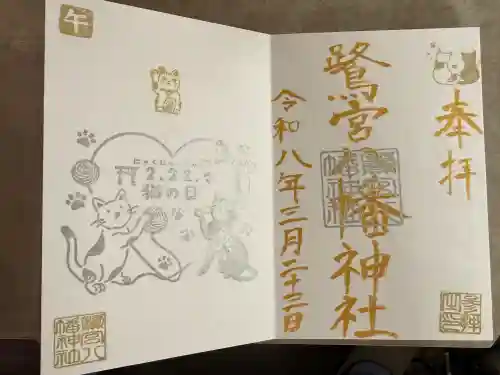 奉拝
鷺宮八幡神社
令和八年二月二十二日
午
2.22.
猫の日
鷺宮八
幡神社